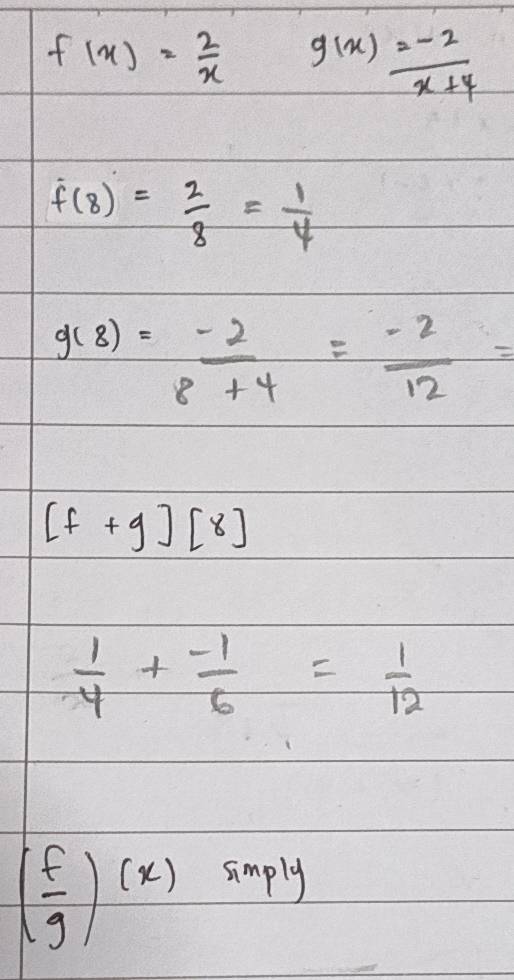 f(x) = 2/x g(x) = -2/x+4
f(8) = 2/8 = 1/4
g(8) = -2/8+4 = -2/12 =
[f + g][8]
1/4 + -1/6 = 1/12
(f/g)(x) simply